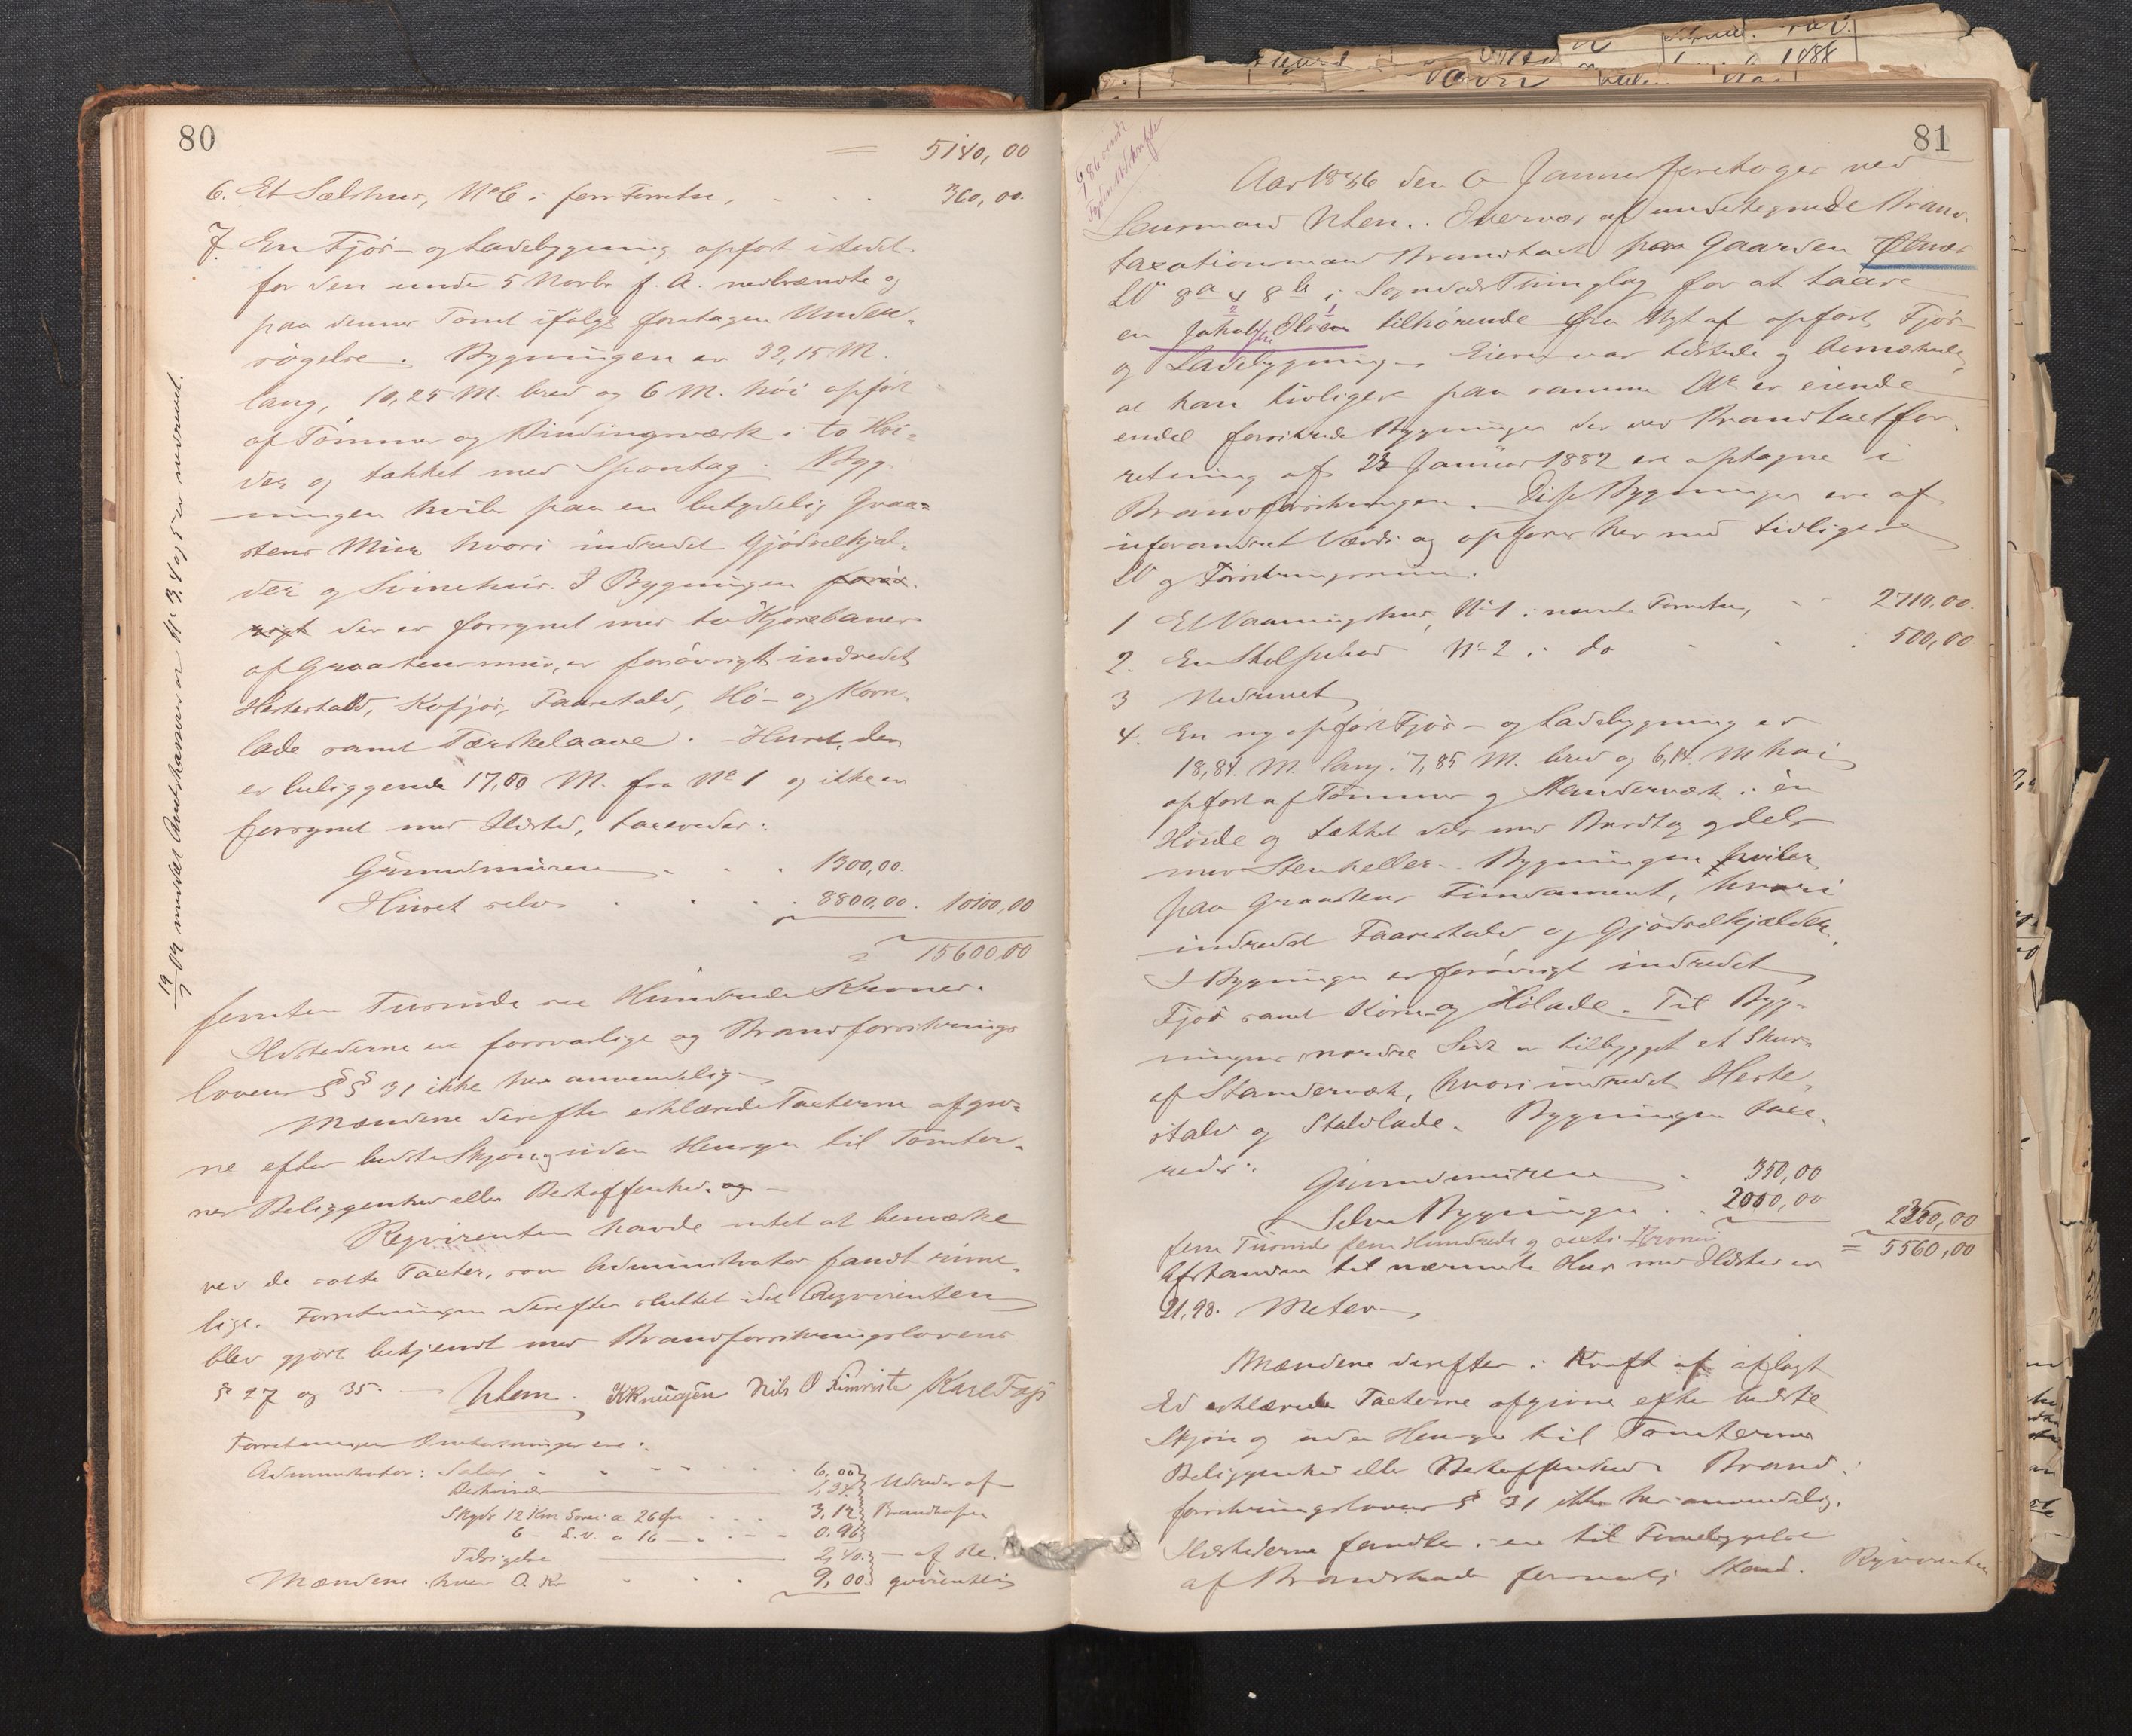 80
= 5140,00
6. Et Sælshus, No 6 i forr. Forretn., . . . 360,00.
7. En Fjös- og Ladebygning opfört istedet
for den under 5 Novbr f. A. nedbrændte og
paa dennes Tomt ifölge foretagen Unders-
rögelse. Bygningen er 32,15 M.
lang, 10,25 M. bred og 6 M. höi opfört
af Tömmer og Bindingsværk i to Höi-
der og tækket med Spontag. Byg-
ningen hviler paa en betydelig Graa-
stens Mur hvori indredet Gjödselkjæl-
der og Svinehus. I Bygningen forö-
vrigt der er forsynet med to Kjörebaner
af Graastensmur, er forövrigt indredet
Hestestald, Kofjös, Faarestald, Hö- og Korn-
lade samt Tærskelaave. - Huset, der
er beliggende 17,00 M. fra No 1 og ikke er
forsynet med Ildsted, taxeredes:
Grundmuren . . . 1300,00.
Huset selv . . . . 8800,00. 10100,00
= 15600,00
femten Tusinde sex Hundrede Kroner.
Ildstederne ere forsvarlige og Brandforsikrings
lovens §§ 31 ikke her anvendelig.
Mændene derefter erklærede Taxterne afgiv-
ne efter bedste Skjön og uden Hensyn til Tomter-
nes Beliggenhed eller Beskaffenhed. og
Reqvirenten havde intet at bemærke
ved de satte Taxter, som Administrator fandt rime-
lige. Forretningen derefter sluttet idet Reqvirenten
blev gjort bekjendt med Brandforsikringslovens
§ 27 og 35. — Uten. K Knugsen Nils O Karl
Forretningens Omkostninger ere:
Administrator: Salær . . . . 6,00
Skyds 12 Km Sövei a 26 Öre . . . 3,12 Brandkassen
6 - L.V. a 16 — . . . 0.96
Tilsigelse 2,40. — af Re-
Mændene hver . . . 9,00 qvirenten
19/7 02 meddelt Amtskassereren No 3. 4 og 5 er nedrevet.
81
Aar 1886 den 6 Januar foretoges ved
Lensmand Uten. Overvær af undertegnede Brand-
taxationsmænd Brandtaxt paa Gaarden
LN 8a & 8b i Sogndals Thinglag for at taxere
en Jakob Olsen tilhörende fra Nyt af opfört Fjös-
og Ladebygning. Eieren var tilstede og bemærkede,
at han tidligere paa samme No er eiende
endel forsikrede Bygninger der ved Brandtaxtfor-
retning af 23 Januar 1882 ere optagne i
Brandforsikringen. Disse Bygninger ere af
uforandret Værdi og opföres her med tidligere
LN og Forsikringssum.
1 Et Vaaningshus, No 1 i nævnte Forretn., . . 2710,00.
2. En Skolpebod No 2 i do . . . 500,00
3 Nedrevet
4. En ny opfört Fjös- og Ladebygning er
18,84 M. lang. 7,85 M. bred og 6,14 M höi
opfört af Tömmer og Standerværk i én
Höide og tækket dels med Bordtag og dels
med Stenheller. Bygningen hviler
paa Graastens Fundament, hvori
indredet Faarestald og Gjödselkjælder.
I Bygningen er forövrigt indredet
Fjös samt Korn og Hölade. Til Byg-
ningens nordre Side er tilbygget et Skur
af Standerværk, hvori indredet Heste-
stald og Staldlade. Bygningen taxe-
redes:
Grundmuren . 350,00
Selve Bygningen . . 2000,00
2350,00
fem Tusinde fem Hundrede og sexti Kroner = 5560,00
Afstanden til nærmeste Hus med Ildsted er
21,98. Meter
Mændene derefter i Kraft af aflagt
Ed erklærede Taxterne afgivne efter bedste
Skjön og uden Hensyn til Tomternes
Beliggenhed eller Beskaffenhed. Brand-
forsikringslovens § 31 ikke her anvendelig.
Ildstederne fandtes i en til Forebyggelse
af Brandskade forsvarlig Stand. Reqvirenten